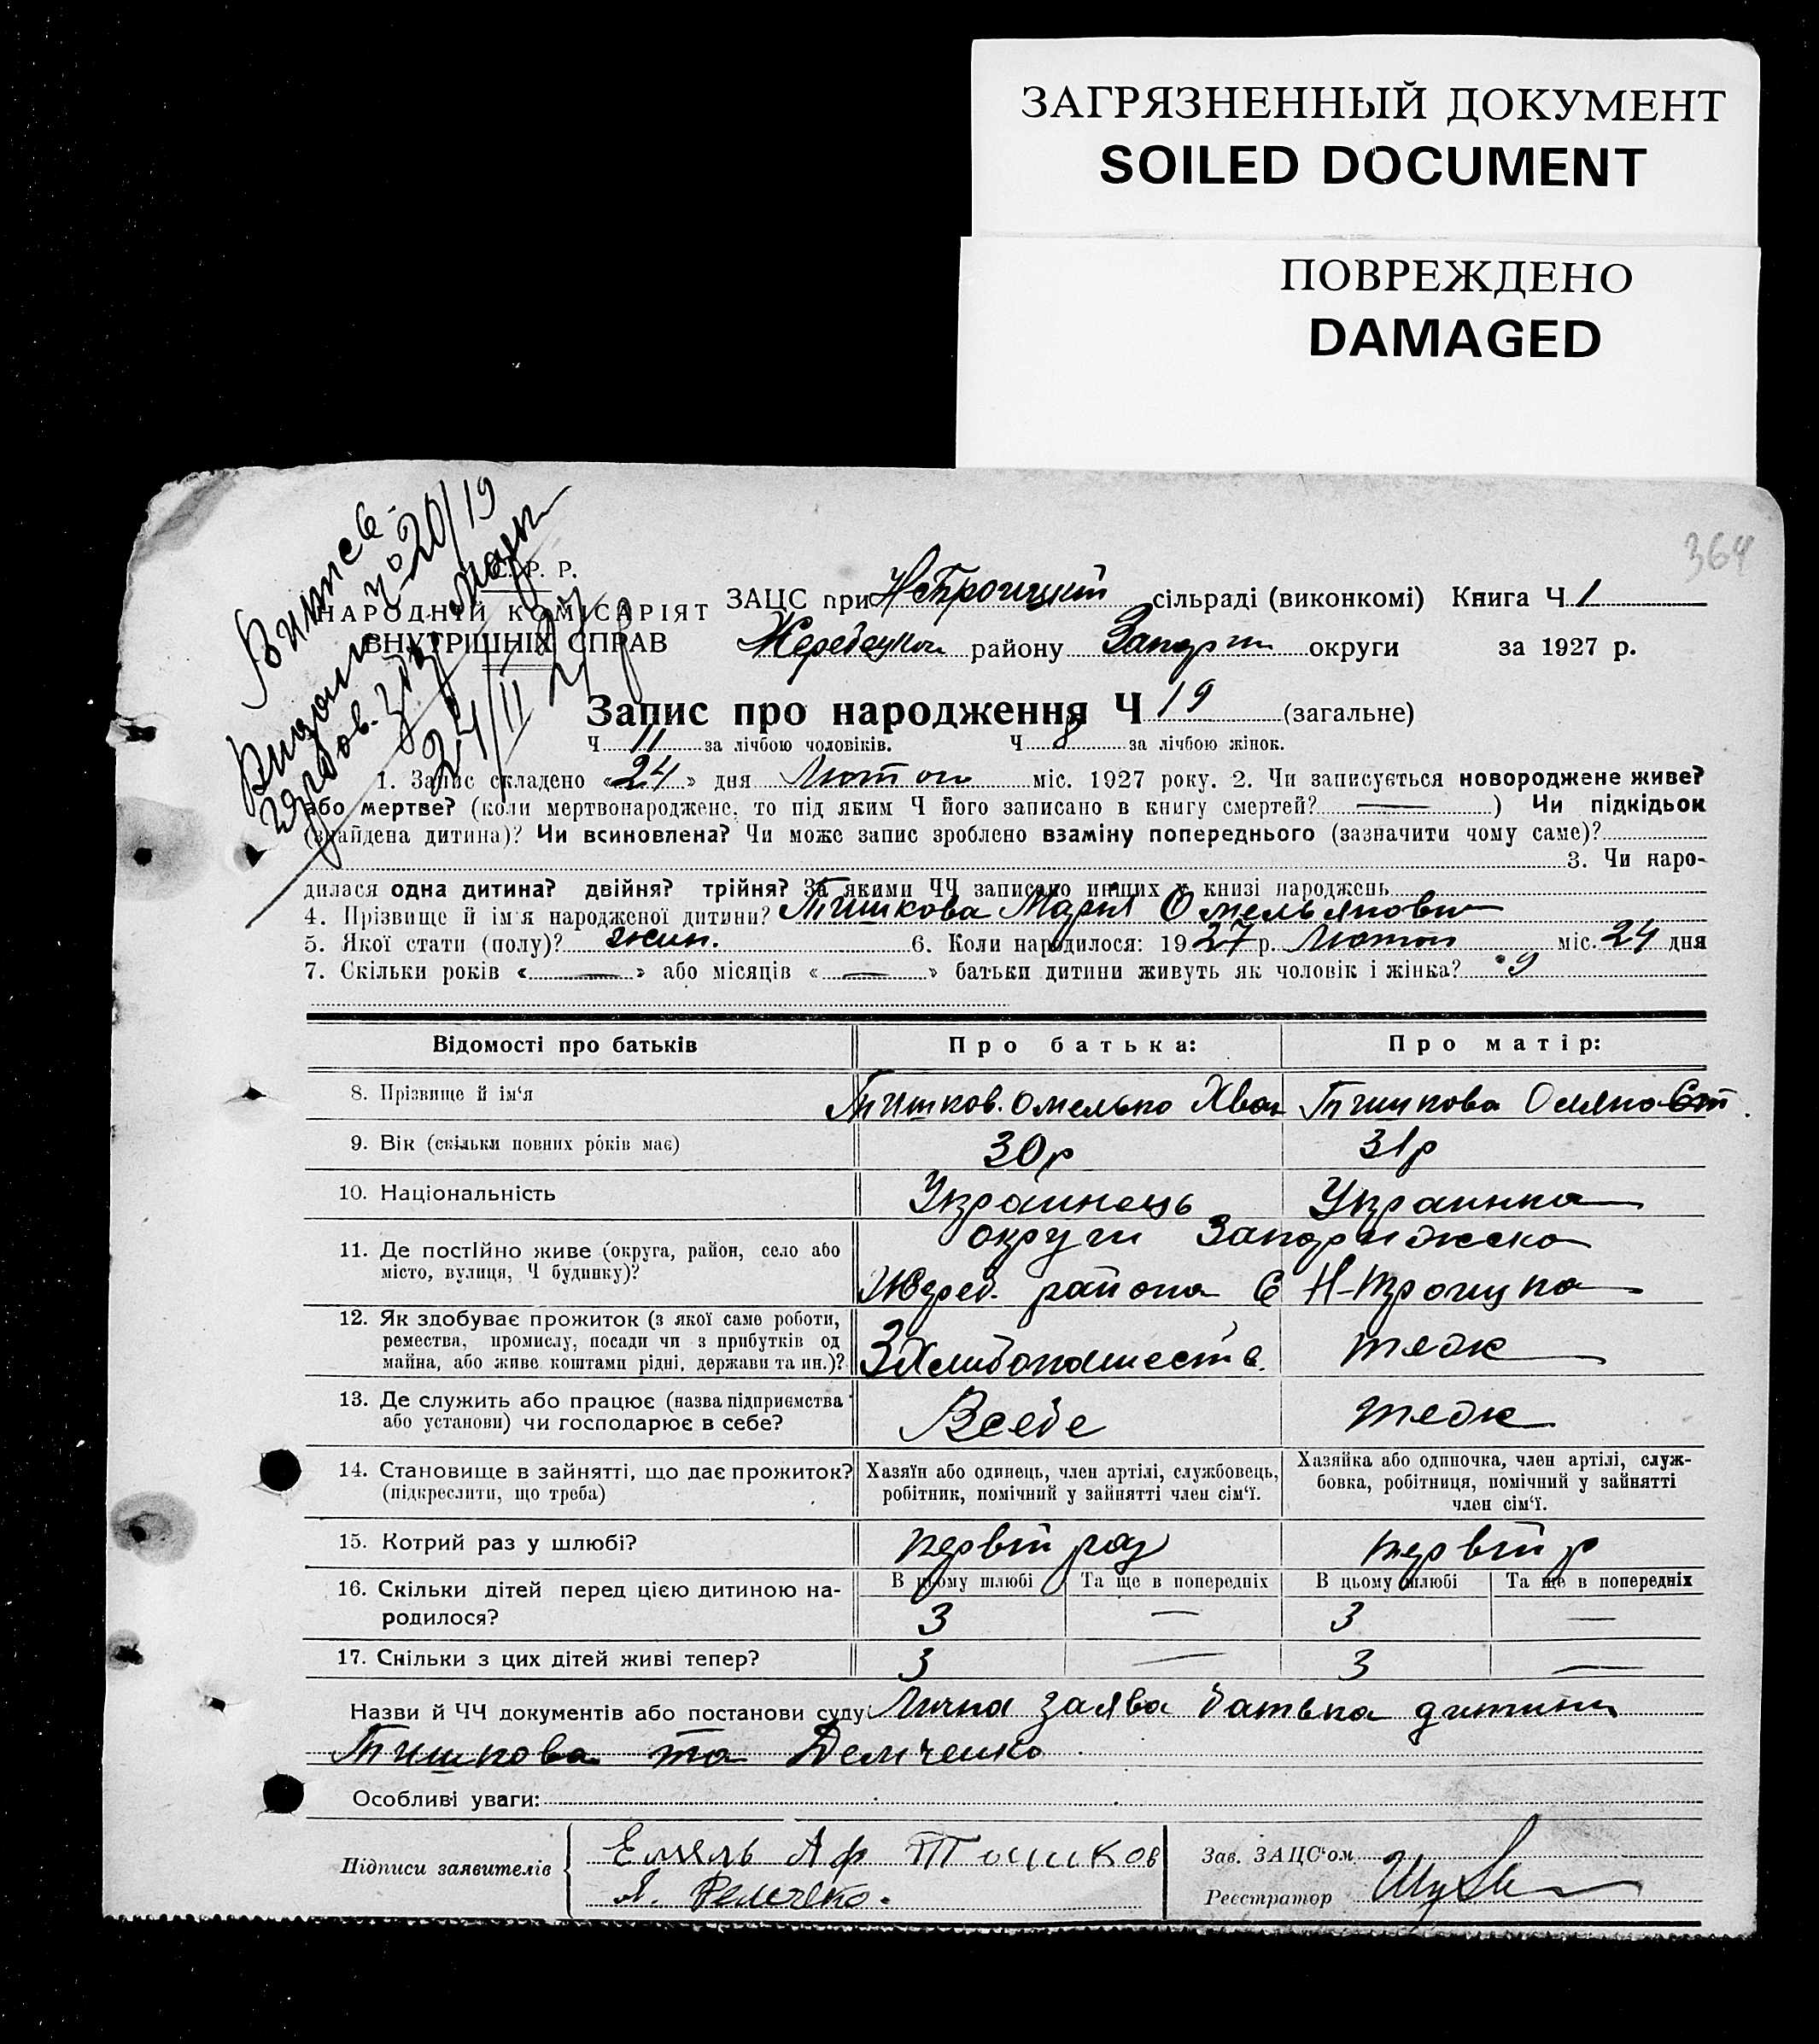 ЗАГРЯЗНЕННЫЙ ДОКУМЕНТ
SOILED DOCUMENT
ПОВРЕЖДЕНО
DAMAGED
364
№ 20/19
24/II 27 р
С. Р. Р.
НАРОДНІЙ КОМІСАРІЯТ
ВНУТРІШНІХ СПРАВ
ЗАЦС при Н Троицкій сільраді (виконкомі) Книга Ч 1
району округи за 1927 р.
Запис про народження Ч 19 (загальне)
Ч 11 за лічбою чоловіків. Ч 8 за лічбою жінок.
1. Запис складено «24» дня Лютого міс. 1927 року. 2. Чи записується новороджене живе?
або мертве? (коли мертвонароджене, то під яким Ч його записано в книгу смертей? —) Чи підкідьок
(знайдена дитина)? Чи всиновлена? Чи може запис зроблено взаміну попереднього (зазначити чому саме)?
3. Чи наро-
дилася одна дитина? двійня? трійня? За якими ЧЧ записано инших у книзі народжень
4. Прізвище й ім'я народженої дитини? Тишкова Марія Омельяновн
5. Якої стати (полу)? жин. 6. Коли народилося: 1927 р. Лютого міс. 24 дня
7. Скільки років «—» або місяців «—» батьки дитини живуть як чоловік і жінка? 9
Відомості про батьків Про батька: Про матір:
8. Прізвище й ім'я Тишков. Омелько Тишкова
9. Вік (скільки повних років має) 30 р 31 р
10. Національність Украинець Украинка
11. Де постійно живе (округа, район, село або округи Запорижска
місто, вулиця, Ч будинку)? Жеред. района С Н-Троицка
12. Як здобуває прожиток (з якої саме роботи,
ремества, промислу, посади чи з прибутків од
майна, або живе коштами рідні, держави та ин.)? З Хлибопашеств. тедж
13. Де служить або працює (назва підприємства
або установи) чи господарює в себе? Всебе тедж
14. Становище в зайнятті, що дає прожиток? Хазяїн або одинець, член артілі, службовець, Хазяйка або одиночка, член артілі, служ-
(підкреслити, що треба) робітник, помічний у зайнятті член сім'ї. бовка, робітниця, помічний у зайнятті
член сім'ї.
15. Котрий раз у шлюбі? первій раз первій р
16. Скільки дітей перед цією дитиною на- В цьому шлюбі Та ще в попередніх В цьому шлюбі Та ще в попередніх
родилося? 3 — 3 —
17. Скільки з цих дітей живі тепер? 3 — 3 —
Назви й ЧЧ документів або постанови суду: Лична заява батька дитини
Тишкова та Демченко
Особливі уваги:
Підписи заявителів Емель Аф Тишков
Зав. ЗАЦС'ом
Я. Демченко.
Реєстратор